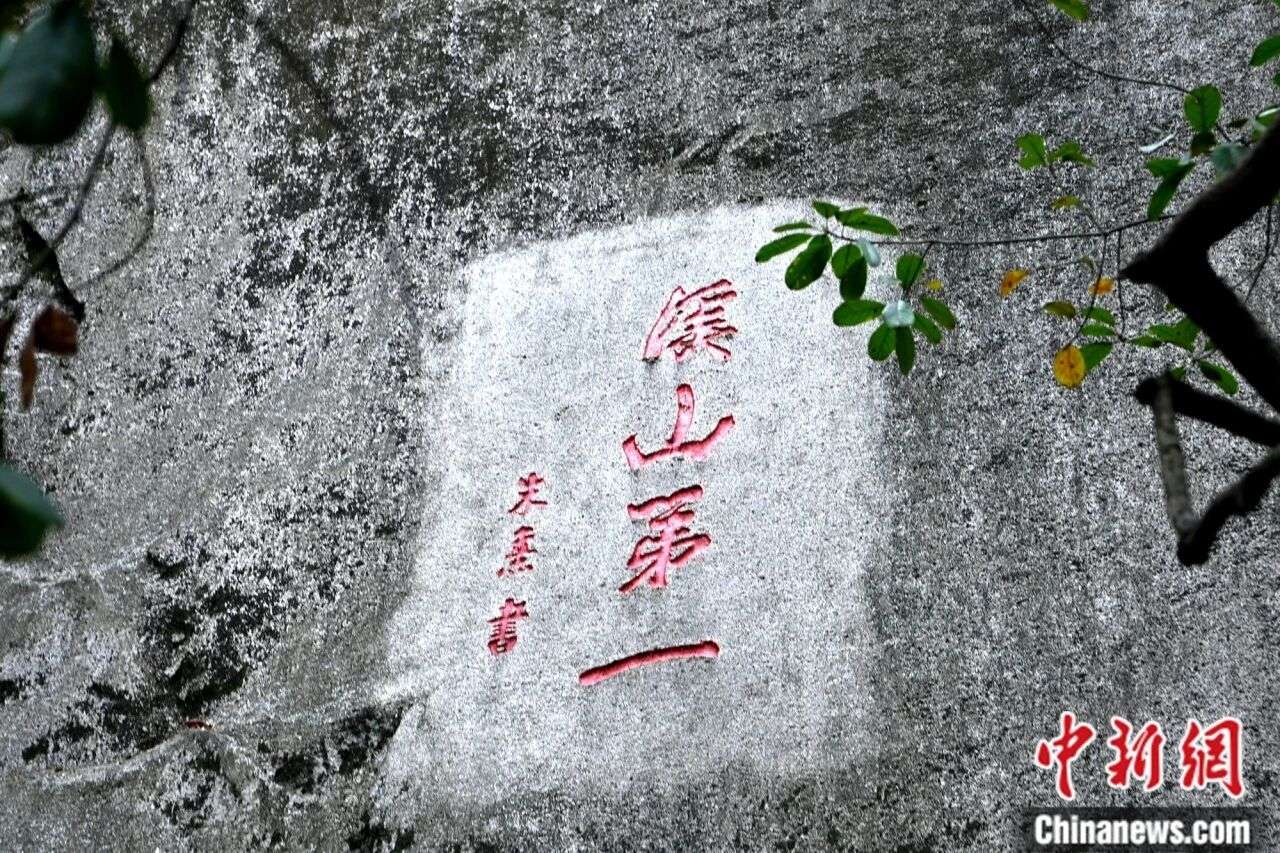 溪山第一
朱熹書
中新网
Chinanews.com